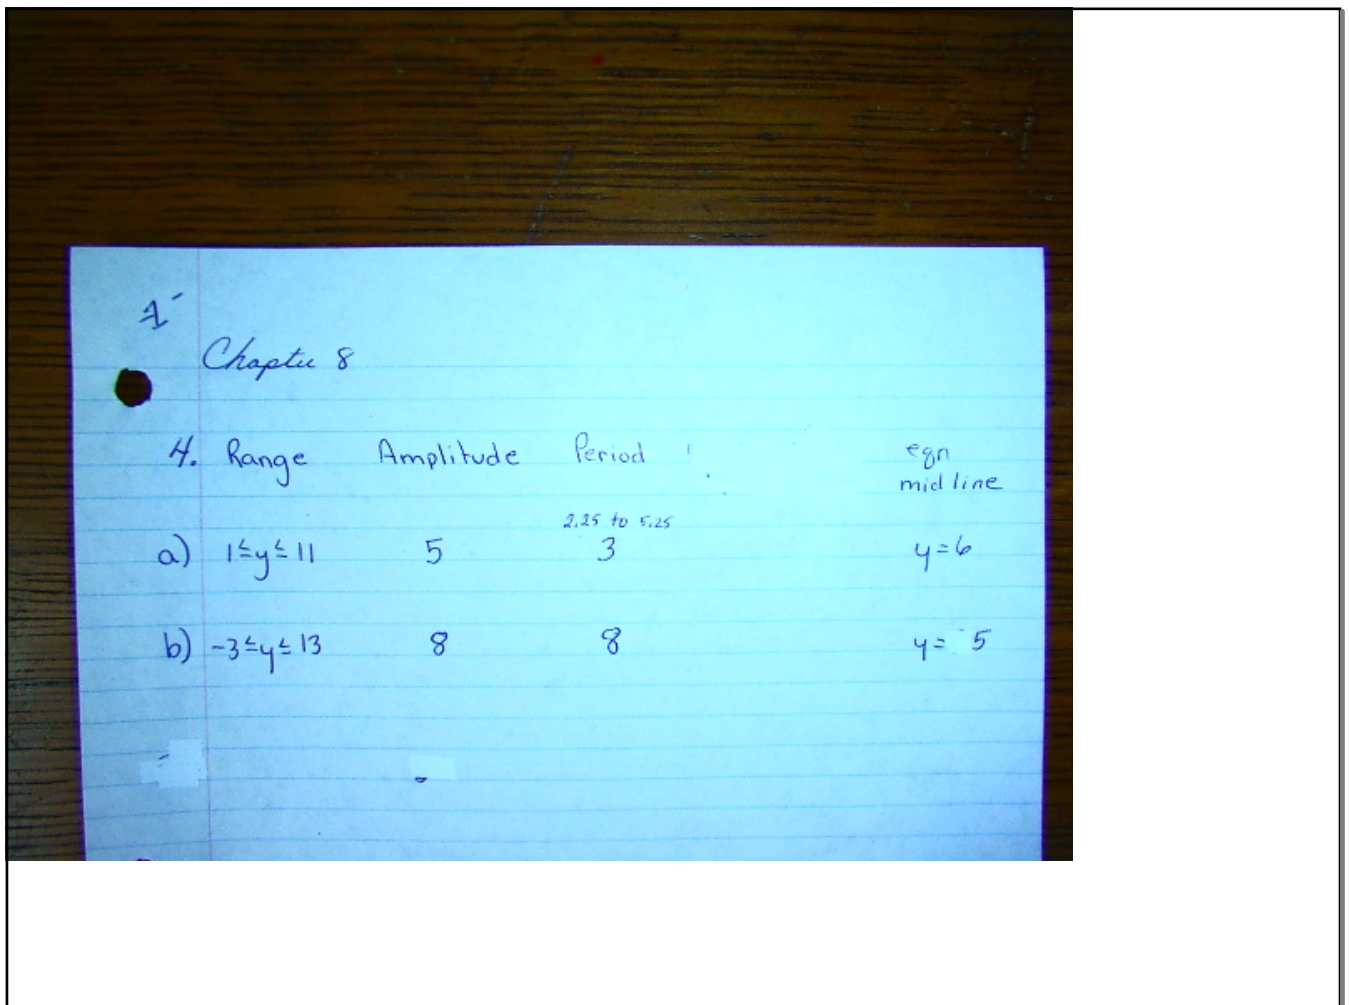 1
Chapter 8
4. Range Amplitude Period eqn
mid line
2.25 to 5.25
a) 1≤y≤11 5 3 y=6
b) -3≤y≤13 8 8 y= 5